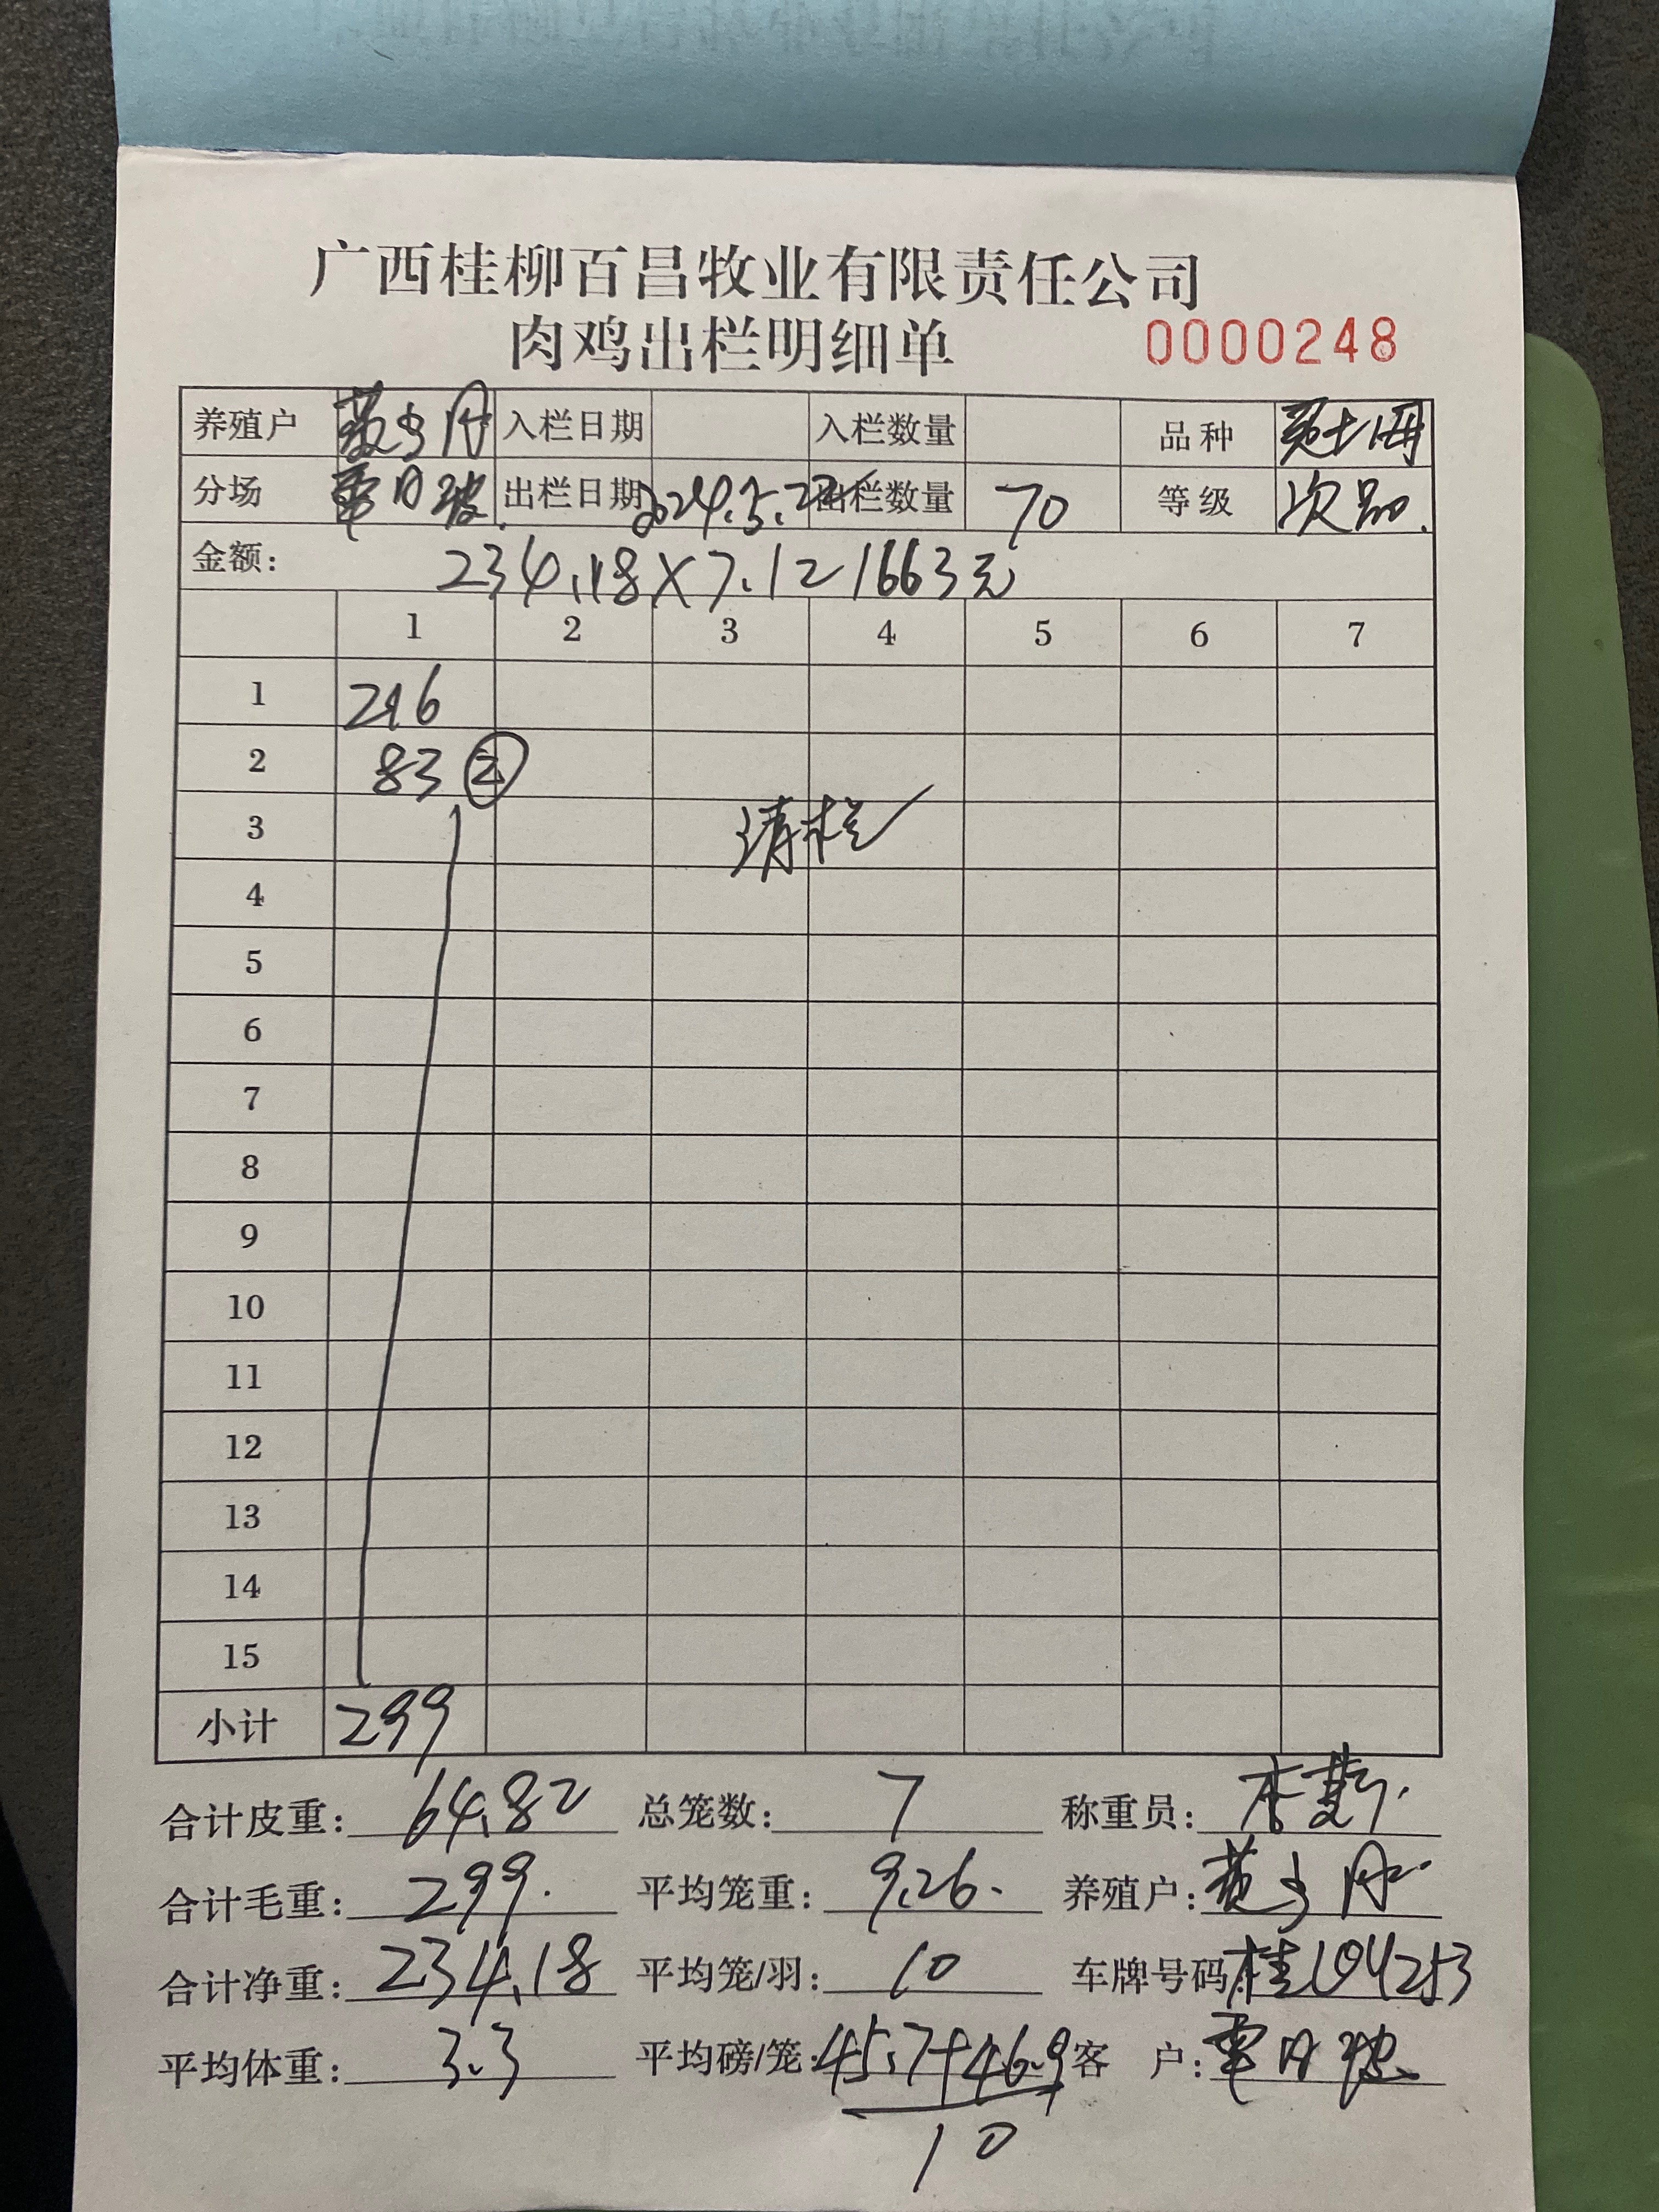 广西桂柳百昌牧业有限责任公司
肉鸡出栏明细单 0000248
养殖户 入栏日期 入栏数量 品种
分场 覃日 出栏日期 2024.5.22 出栏数量 70 等级 次品.
金额: 234.18X7.1= 1663元
1 2 3 4 5 6 7
1 216
2 83 ②
3 清栏
4
5
6
7
8
9
10
11
12
13
14
15
小计 299
合计皮重: 64.82 总笼数: 7 称重员: 李
合计毛重: 299. 平均笼重: 9.26. 养殖户:
合计净重: 234.18 平均笼/羽: 10 车牌号码: 桂
平均体重: 3.3 平均磅/笼: 45.7+46.9 客 户: 覃日
10